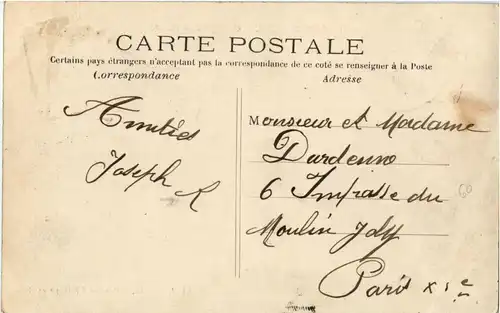 CARTE POSTALE
Certains pays étrangers n'acceptant pas la correspondance de ce coté se renseigner à la Poste
Correspondance
Adresse
Amitiés
Joseph R
Monsieur et Madame
Dardenne
6 Impasse du
Moulin Joly
Paris XIe
60
CARTE POSTALE